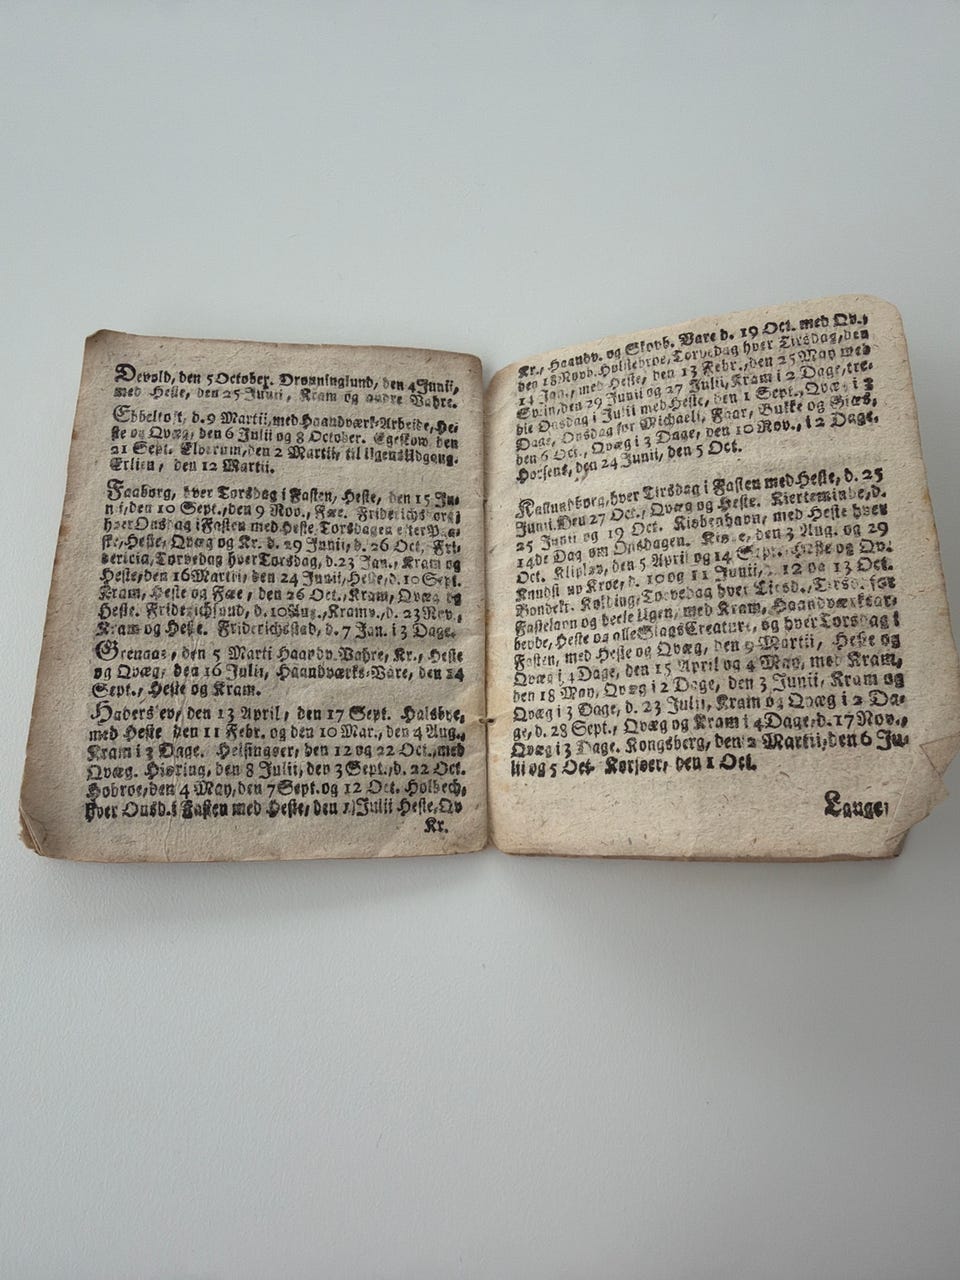 Devold, den 5 October. Drønninglund, den 4 Junii,
med Heste, den 25 Junii, Kram og andre Vahre.
Ebbeltoft, d. 9 Martii, med Haandværk-Arbeide, He-
ste og Qvæg, den 6 Julii og 8 October. Egeskow den
21 Sept. Elverum, den 2 Martii, til Ugens Udgang.
Erlien, den 12 Martii.
Faaborg, hver Torsdag i Fasten, Heste, den 15 Ju-
nii, den 10 Sept., den 9 Nov., Fæe. Friderichsborg,
hver Onsdag i Fasten med Heste, Torsdagen efter Paa-
ske, Heste, Qvæg og Kr. d. 29 Junii, d. 26 Oct. Fri-
dericia, Torvedag hver Torsdag, d. 23 Jan., Kram og
Heste, den 16 Martii, den 24 Junii, Heste, d. 10 Sept.
Kram, Heste og Fæe, den 26 Oct., Kram, Qvæg og
Heste. Friderichsund, d. 10 Aug., Kramv., d. 23 Nov.,
Kram og Heste. Friderichsstad, d. 7 Jan. i 3 Dage.
Grenaae, den 5 Marti Haandv. Vahre, Kr., Heste
og Qvæg, den 16 Julii, Haandværks-Vare, den 14
Sept., Heste og Kram.
Haderslev, den 13 April, den 17 Sept. Halsbye,
med Heste den 11 Febr. og den 10 Mar., den 4 Aug.,
Kram i 3 Dage. Helsingøer, den 12 og 22 Oct., med
Qvæg. Hiøring, den 8 Julii, den 3 Sept., d. 22 Oct.
Hobroe, den 4 May, den 7 Sept. og 12 Oct. Holbech,
hver Onsd. i Fasten med Heste, den 1 Julii Heste, Qv
Kr.
Kr., Haandv. og Skovb. Vare d. 19 Oct. med Qv.,
den 18 Novb. Holstebroe, Torvedag hver Tirsdag, den
14 Jan., med Heste, den 13 Febr., den 25 May med
Sviin, den 29 Junii og 27 Julii, Kram i 2 Dage, tre-
die Onsdag i Julii med Heste, den 1 Sept., Qvæg i 3
Dage, Onsdag før Michaeli, Faar, Bukke og Gieds,
den 6 Oct., Qvæg i 3 Dage, den 10 Nov., i 2 Dage.
Horsens, den 24 Junii, den 5 Oct.
Kallundborg, hver Tirsdag i Fasten med Heste, d. 25
Junii. Den 27 Oct., Qvæg og Heste. Kierteminde, d.
25 Junii og 19 Oct. Kiøbenhavn, med Heste hver
14de Dag om Onsdagen. Kiøge, den 3 Aug. og 29
Oct. Kliplev, den 5 April og 14 Sept. Heste og Qv.
Knudst. ny Kroe, d. 10 og 11 Junii, 12 og 13 Oct.
Bondek. Kolding, Torvedag hver Tiesd., Torsd. før
Fastelavn og heele Ugen, med Kram, Haandværksar-
beyde, Heste og alle Slags Creature, og hver Torsdag i
Fasten, med Heste og Qvæg, den 9 Martii, Heste og
Qvæg i 4 Dage, den 15 April og 4 May, med Kram,
den 18 May, Qvæg i 2 Dage, den 3 Junii, Kram og
Qvæg i 3 Dage, d. 23 Julii, Kram og Qvæg i 2 Da-
ge, d. 28 Sept., Qvæg og Kram i 4 Dage, d. 17 Nov.,
Qvæg i 3 Dage. Kongsberg, den 2 Martii, den 6 Ju-
lii og 5 Oct. Korsøer, den 1 Oct.
Lange-